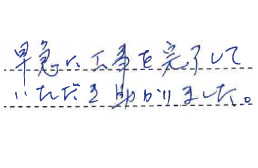 早急に工事を完了して
いただき助かりました。